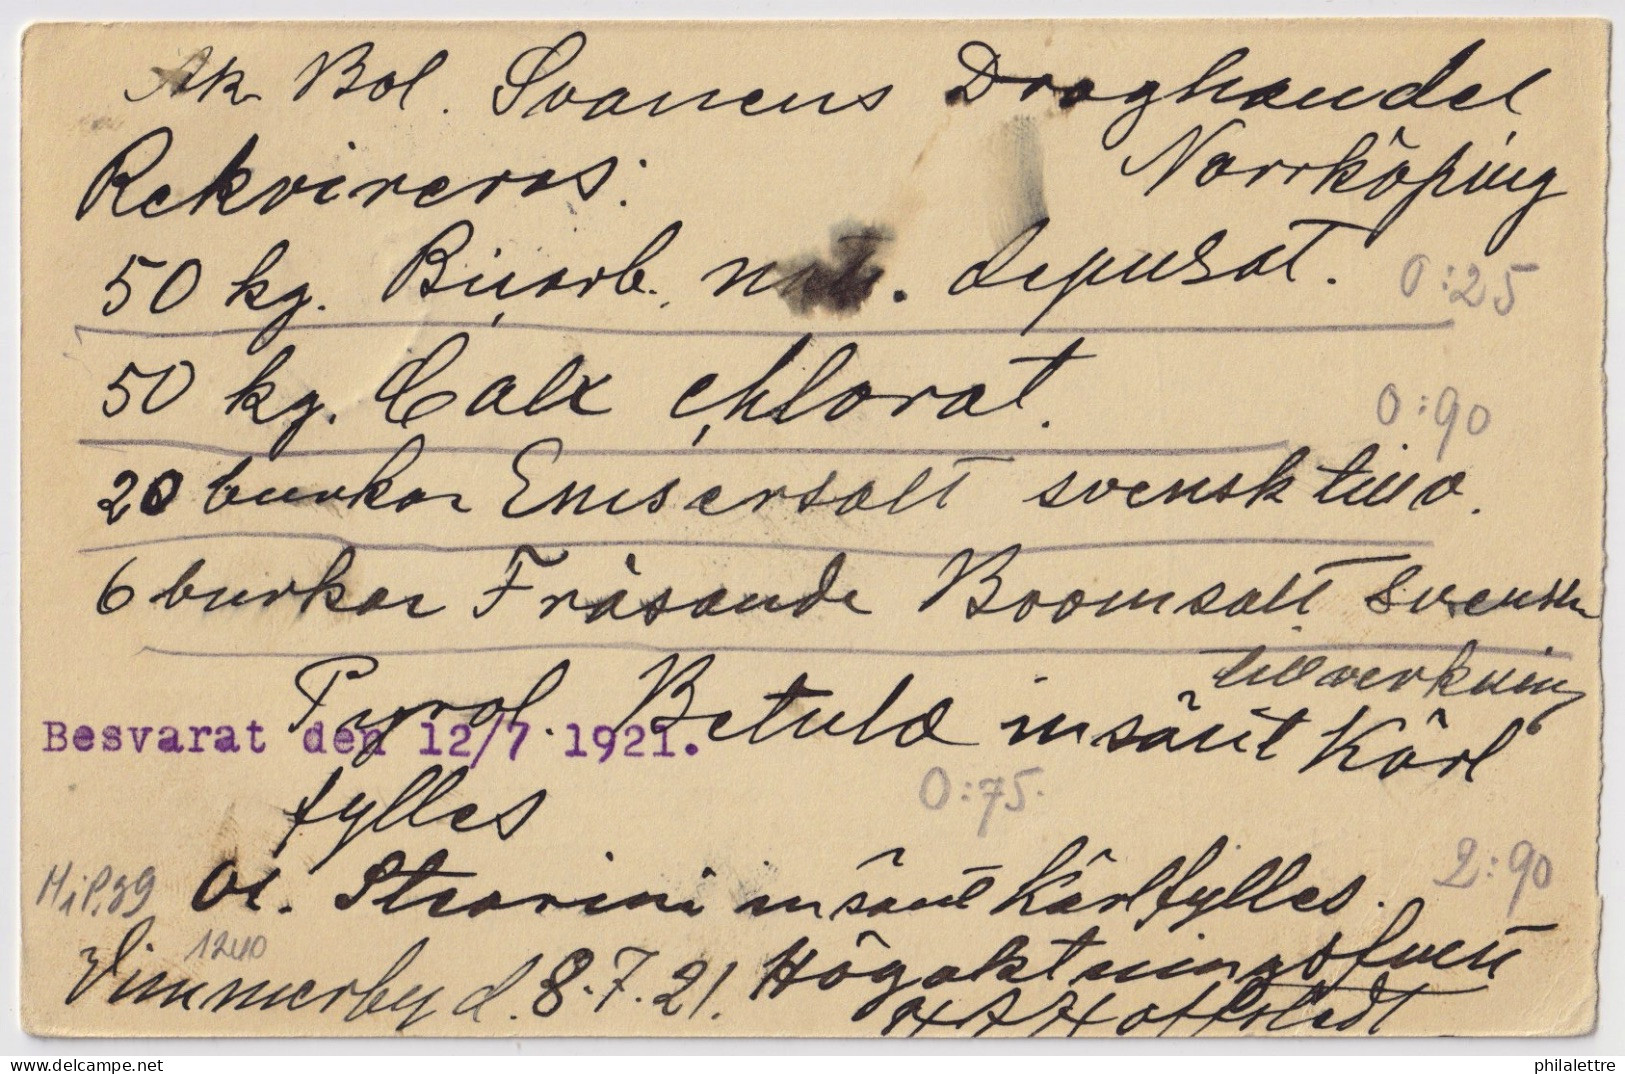 Ak Bol. Svanens Droghandel
Norrköping
Rekvireras:
50 kg. Bicarb. nat. depurat. 0:25
50 kg. Calx chlorat. 0:90
20 burkar Emsersalt svensk tillv.
6 burkar Fräsande Bromsalt svensk
tillverkning
Pyrol. Betulæ insänt kärl
Besvarat den 12/7 1921.
fylles
0:75.
Ol. Stearini insänt kärl fylles. 2:90
1240
Vimmerby d. 8.7.21. Högaktningsfullt
philalettre